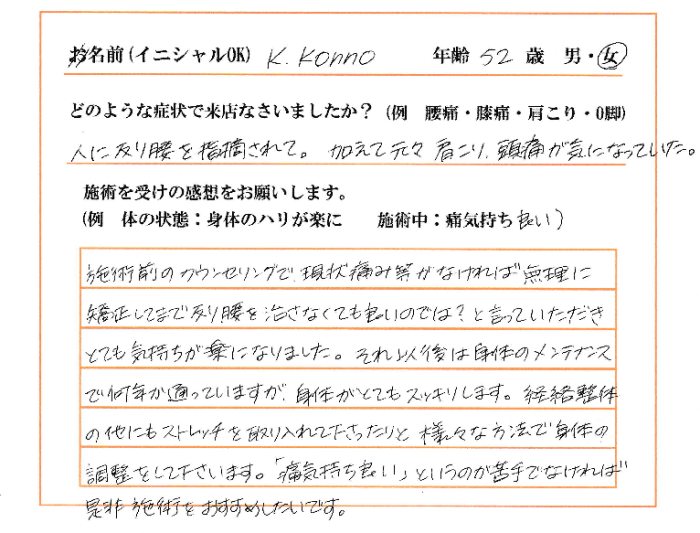 お名前(イニシャルOK) K. Konno 年齢 52 歳 男・女
どのような症状で来店なさいましたか？(例 腰痛・膝痛・肩こり・O脚)
人に反り腰を指摘されて。 加えて元々肩こり、頭痛が気になっていた。
施術を受けの感想をお願いします。
(例 体の状態：身体のハリが楽に 施術中：痛気持ち良い)
施術前のカウンセリングで、現状痛み等がなければ無理に
矯正してまで反り腰を治さなくても良いのでは？と言っていただき
とても気持ちが楽になりました。それ以後は身体のメンテナンス
で何年か通っていますが、身体がとてもスッキリします。経絡整体
の他にもストレッチを取り入れて下さったりと様々な方法で身体の
調整をして下さいます。「痛気持ち良い」というのが苦手でなければ
是非施術をおすすめしたいです。